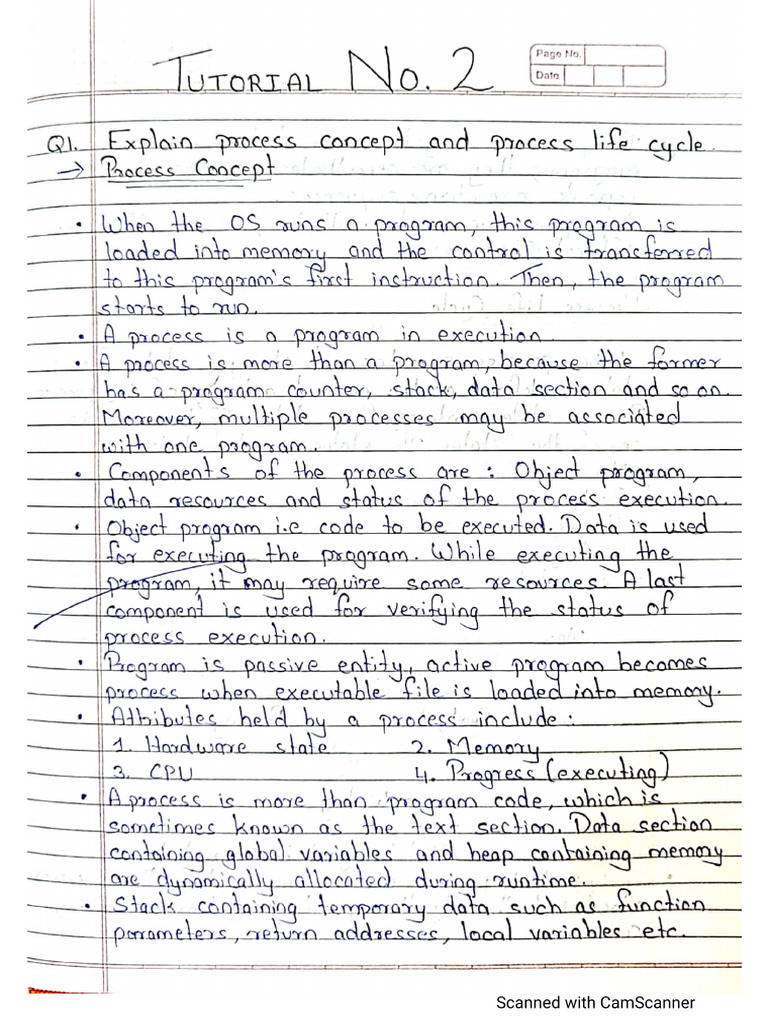 TUTORIAL No. 2
Page No.
Date
Q1. Explain process concept and process life cycle.
→ Process Concept
• When the OS runs a program, this program is
loaded into memory and the control is transferred
to this program's first instruction. Then, the program
starts to run.
• A process is a program in execution.
• A process is more than a program, because the former
has a program counter, stack, data section and so on.
Moreover, multiple processes may be associated
with one program.
• Components of the process are : Object program,
data resources and status of the process execution.
• Object program i.e code to be executed. Data is used
for executing the program. While executing the
program, it may require some resources. A last
component is used for verifying the status of
process execution.
• Program is passive entity, active program becomes
process when executable file is loaded into memory.
• Attributes held by a process include :
1. Hardware state 2. Memory
3. CPU 4. Progress (executing)
• A process is more than program code, which is
sometimes known as the text section. Data section
containing global variables and heap containing memory
are dynamically allocated during runtime.
• Stack containing temporary data such as function
parameters, return addresses, local variables etc.
Scanned with CamScanner